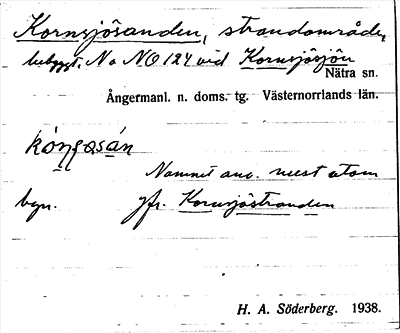 Kornsjösanden, strandområde,
bebyggt. N o NO 124 vid Kornsjösjön
Nätra sn.
Ångermanl. n. doms. tg. Västernorrlands län.
Namnet anv. mest utom
byn. Jfr. Kornsjöstranden
H. A. Söderberg. 1938.